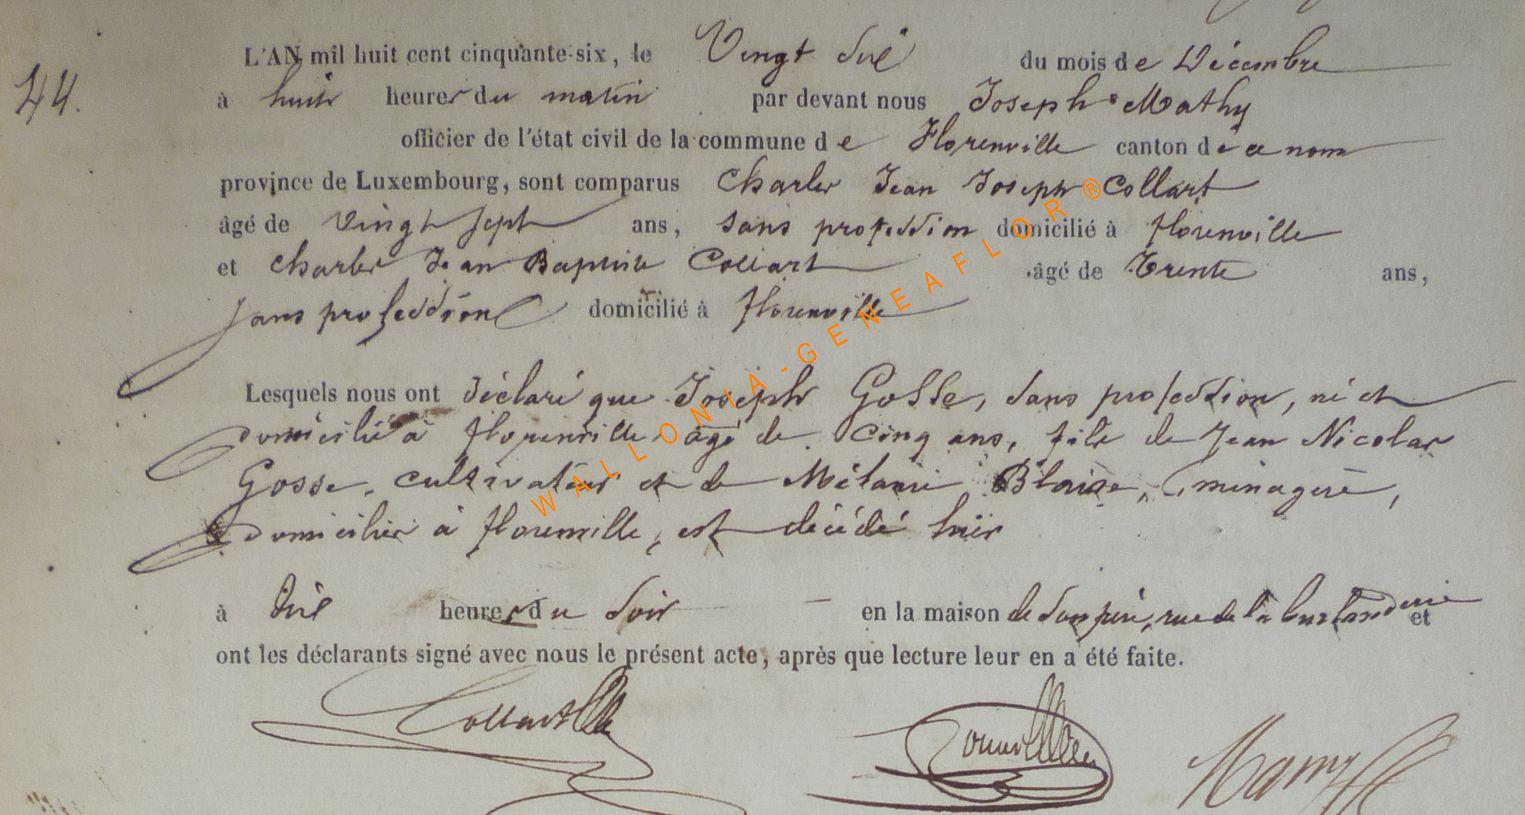 44.
L'AN mil huit cent cinquante-six, le Vingt six du mois de Décembre
à huit heures du matin par devant nous Joseph Mathy
officier de l'état civil de la commune de Florenville canton de ce nom
province de Luxembourg, sont comparus Charles Jean Joseph Collart
âgé de vingt sept ans, sans profession domicilié à florenville
et Charles Jean Baptiste Collart âgé de Trente ans,
sans profession domicilié à florenville
Lesquels nous ont déclaré que Joseph Gosse, sans profession, né et
domicilié à florenville âgé de cinq ans, fils de Jean Nicolas
Gosse, cultivateur et de Mélanie Blaise, ménagère,
domiciliés à florenville, est décédé hier
à six heures du soir en la maison de son père, rue de la et
ont les déclarants signé avec nous le présent acte, après que lecture leur en a été faite.
Collart
WALLONIA-GENEAFLOR®